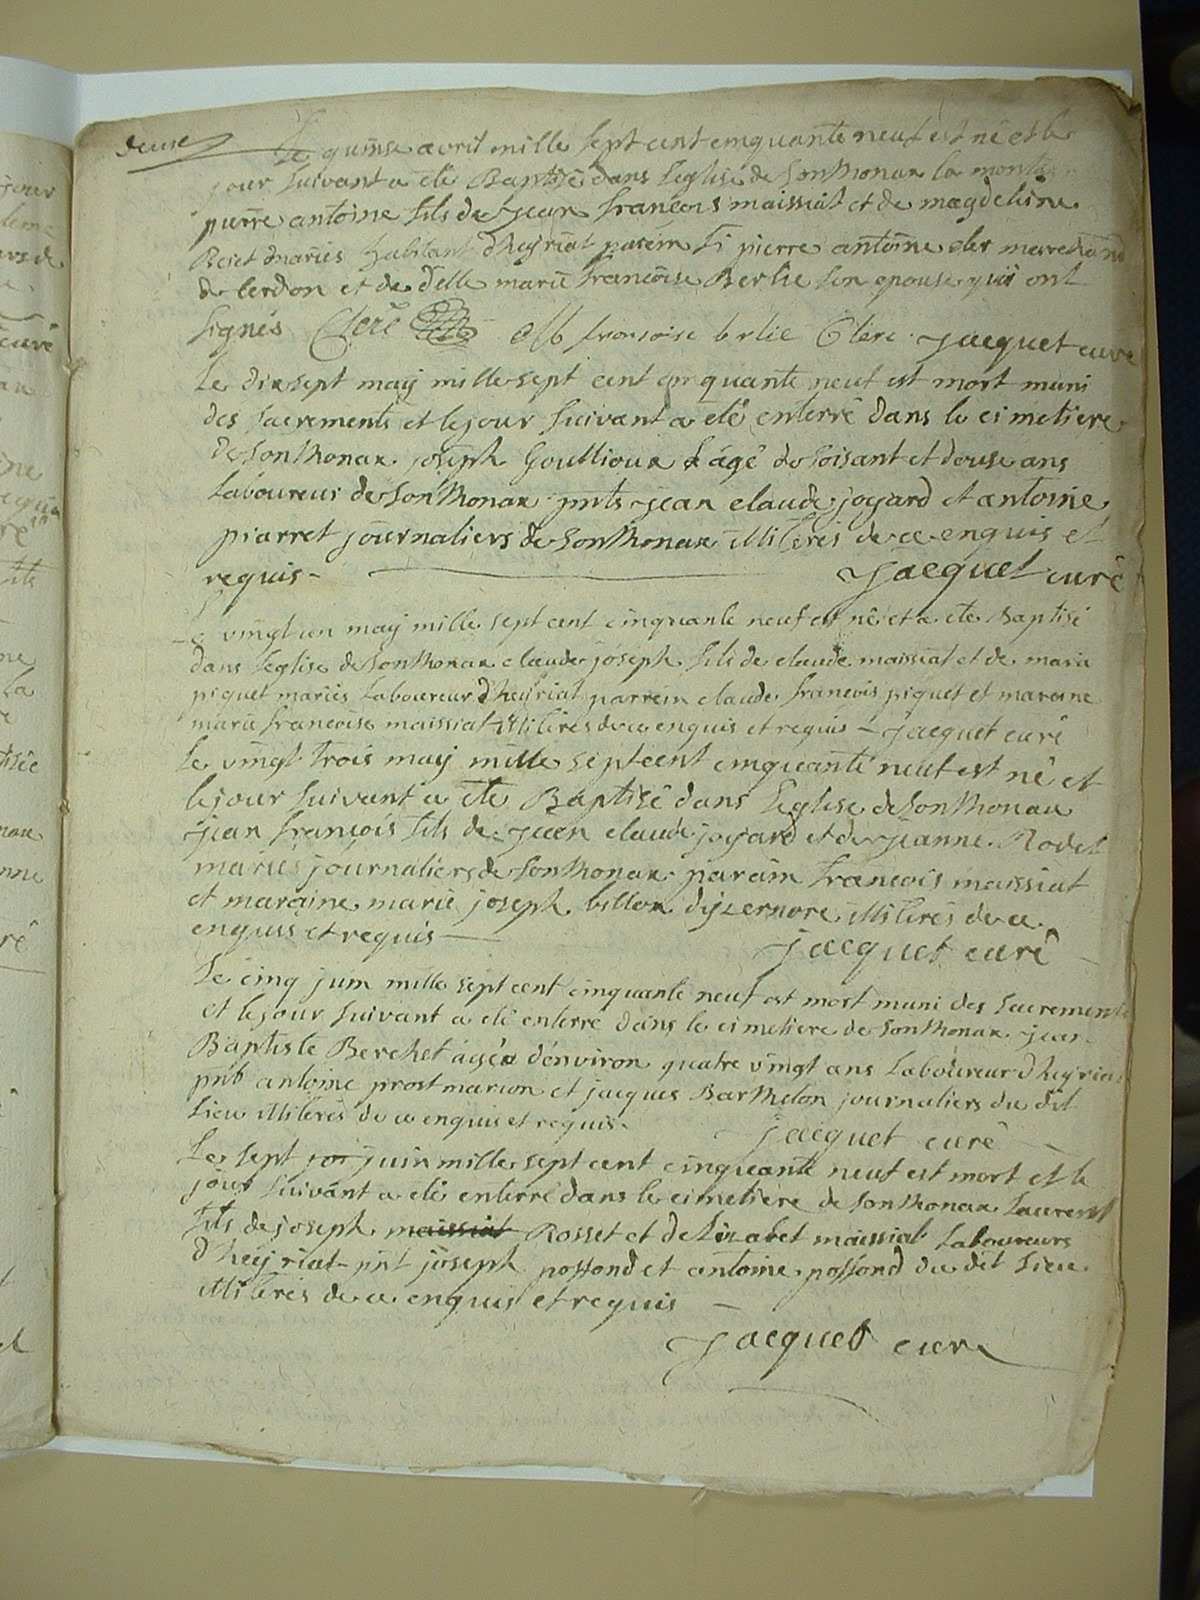 deuse
Le quinse avril mille sept cent cinquante neuf est né et le
jour suivant a été Baptisé dans l'eglise de Sonthonax la montagne
pierre antoine fils de jean françois maissiat et de magdeleine
mariés habitant d'heyriat pierre antoine clerc
de cerdon et de delle marie françoise Berlie son epouse qui ont
signés Clerc françoise brlie Clerc jacquet curé
Le dix sept maÿ mille sept cent cinquante neuf est mort muni
des sacrements et le jour suivant a eté enterré dans le cimetiere
de Sonthonax joseph Goullioux agé de soisant et douse ans
laboureur de Sonthonax pnts jean claude joyard et antoine
piarret journaliers de Sonthonax illiterés de ce enquis et
requis - jacquet curé
Le vingt un maÿ mille sept cent cinquante neuf est né et a eté Baptisé
dans l'eglise de Sonthonax claude joseph fils de claude maissiat et de marie
piquet mariés laboureur d'heyriat parrein claude françois piquet et mareine
marie francoise maissiat illiterés de ce enquis et requis - jacquet curé
Le vingt trois maÿ mille sept cent cinquante neuf est né et
le jour suivant a eté Baptisé dans l'eglise de Sonthonax
jean françois fils de jean claude joyard et de jeanne Rodet
mariés journaliers de Sonthonax parain francois maissiat
et maraine marie joseph billon dizernore illiterés de ce
enquis et requis - jacquet curé
Le cinq juin mille sept cent cinquante neuf est mort muni des sacrements
et le jour suivant a eté enterré dans le cimetiere de Sonthonax jean
Baptiste Berchet agé d'environ quatre vingt ans laboureur d'heyriat
pnts antoine prost marion et jacques Barthelon journaliers du dit
lieu illiterés de ce enquis et requis - jacquet curé
Le sept jor juin mille sept cent cinquante neuf est mort et le
jour suivant a eté enterré dans le cimetiere de Sonthonax laurent
fils de joseph maissiat Rosset et de lizabet maissiat laboureurs
d'heyriat - pnt joseph possond et antoine possond du dit lieu
illiterés de ce enquis et requis -
jacquet curé